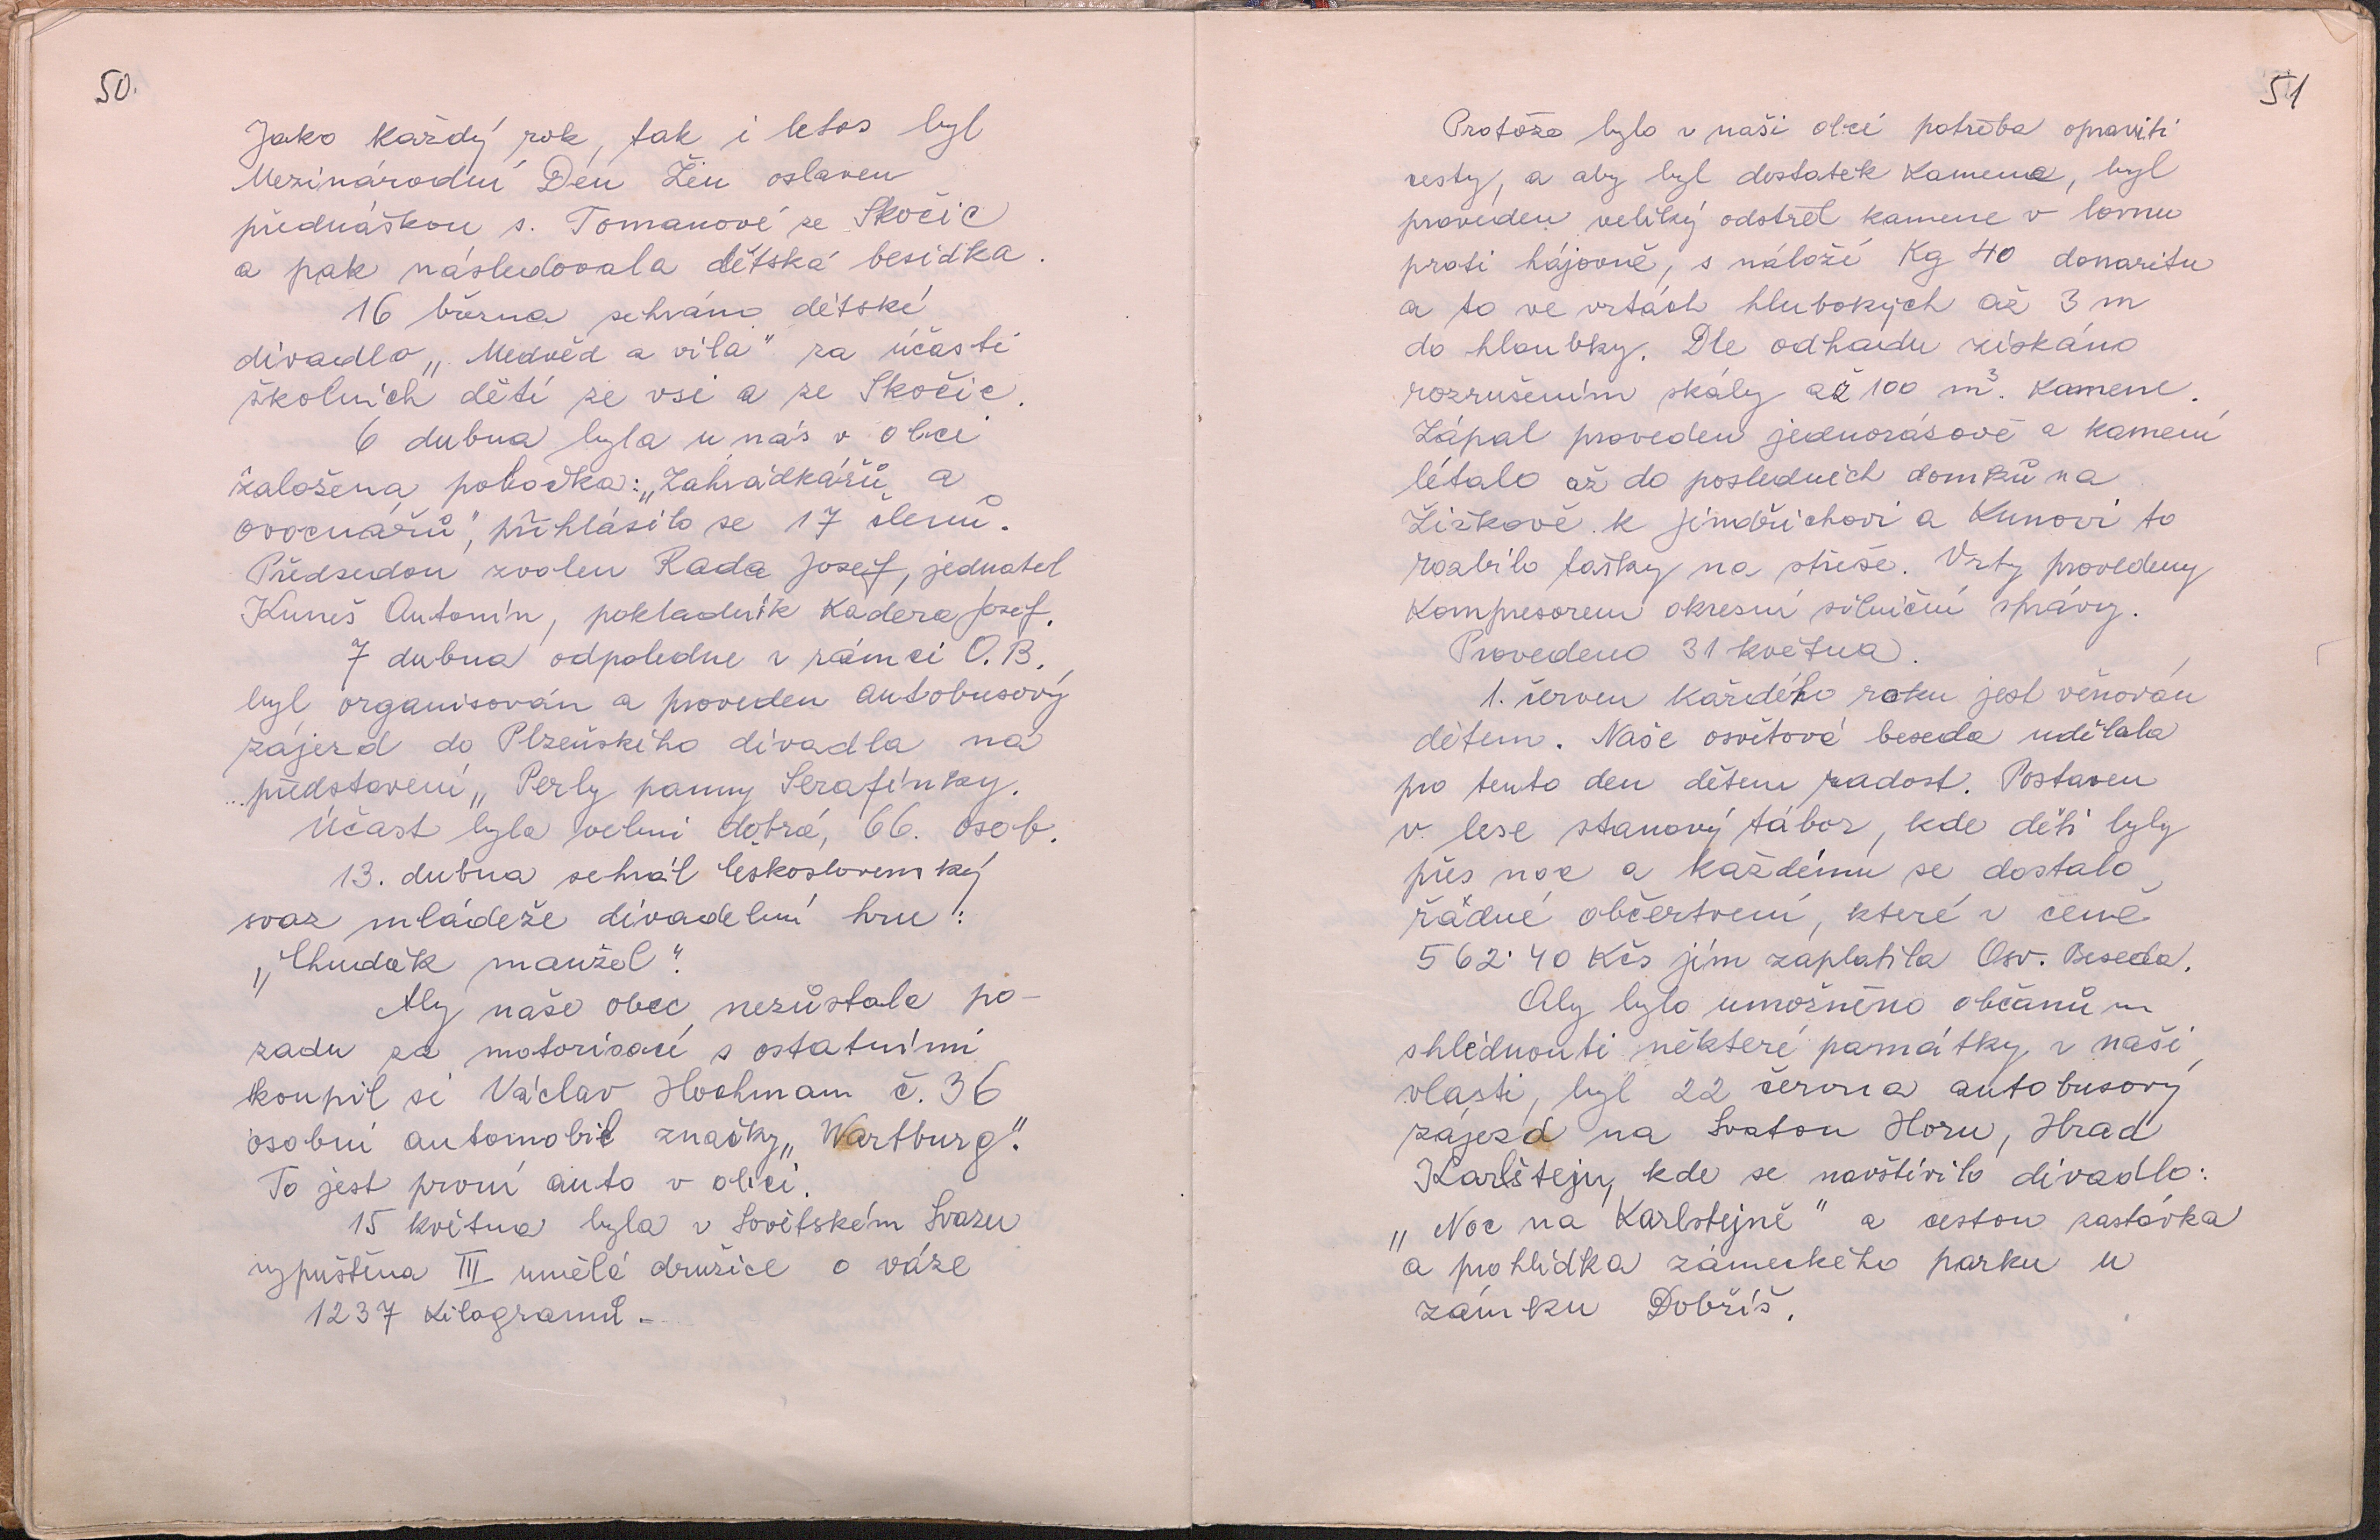 50.
Jako každý rok, tak i letos byl
Mezinárodní Den Žen oslaven
přednáškou s. Tomanové ze Skočic
a pak následovala dětská besídka.
16 března sehráno dětské
divadlo „Medvěd a víla" za účasti
školních dětí ze vsi a ze Skočic.
6 dubna byla u nás v obci
založena pobočka: „Zahrádkářů a
ovocnářů", přihlásilo se 17 členů.
Předsedou zvolen Rada Josef, jednatel
Kuneš Antonín, pokladník Kadera Josef.
7 dubna odpoledne v rámci O.B.
byl organisován a proveden autobusový
zájezd do Plzeňského divadla na
představení „Perly panny Serafínky.
Účast byla velmi dobrá, 66. osob.
13. dubna sehrál Československý
svaz mládeže divadelní hru:
„Chudák manžel".
Aby naše obec nezůstala po-
zadu za motorisací s ostatními
koupil si Václav Hochman č. 36
osobní automobil značky „Wartburg".
To jest první auto v obci.
15 května byla v Sovětském Svazu
vypuštěna III umělá družice o váze
1237 kilogramů.-
51
Protože bylo v naši obci potřeba opraviti
cesty, a aby byl dostatek kamene, byl
proveden veliký odstřel kamene v lomu
proti hájovně, s náloží Kg 40 donaritu
a to ve vrtách hlubokých až 3 m
do hloubky. Dle odhadu získáno
rozrušením skály až 100 m³. kamene.
Zápal proveden jednorásově a kamení
létalo až do posledních domků na
Žižkově. k Jindřichovi a Kunovi to
rozbilo tašky na střeše. Vrty provedeny
Kompresorem okresní silniční správy.
Provedeno 31 května.
1. červen každého roku jest věnován
dětem. Naše osvětová beseda udělala
pro tento den dětem radost. Postaven
v lese stanový tábor, kde děti byly
přes noc a každému se dostalo
řádné občerstvení, které v ceně
562·40 Kčs jim zaplatila Osv. Beseda.
Aby bylo umožněno občanům
shlédnouti některé památky v naší
vlasti, byl 22 června autobusový
zájezd na Svatou Horu, Hrad
Karlštejn, kde se navštívilo divadlo:
„Noc na Karlštejně" a cestou zastávka
a prohlídka zámeckého parku u
zámku Dobříš.